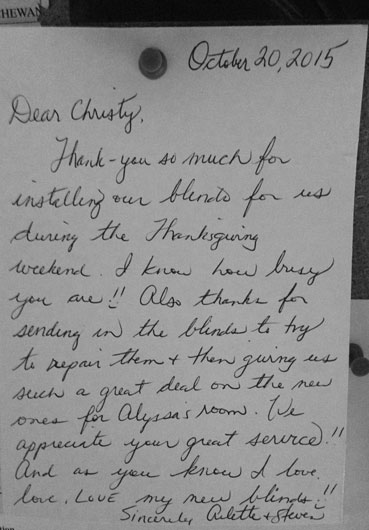 HEWAN
October 20, 2015
Dear Christy,
Thank-you so much for
installing our blinds for us
during the Thanksgiving
weekend. I know how busy
you are!! Also thanks for
sending in the blinds to try
to repair them + then giving us
such a great deal on the new
ones for Alyssa's room. We
appreciate your great service!!
And as you know I love,
love, LOVE my new blinds!!
Sincerely, Arlette & Steven